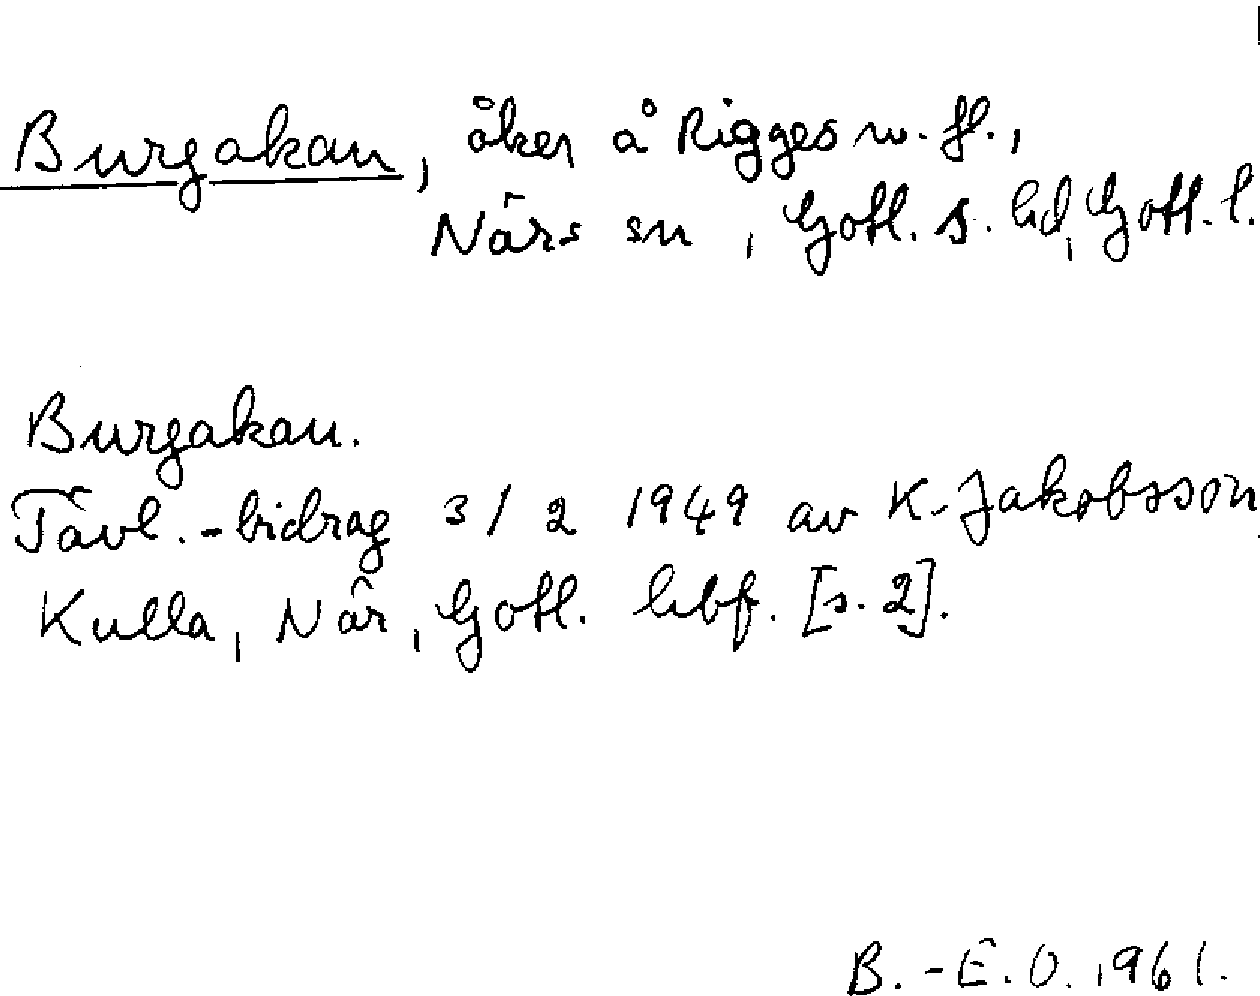 Burgakan, åker å Rigges m. fl.,
Närs sn, Gotl. s. hd, Gotl. l.
Burgakan.
Tävl.-bidrag 3/2 1949 av K. Jakobsson,
Kulla, När, Gotl. hbf. [s. 2].
B.-E. O. 1961.